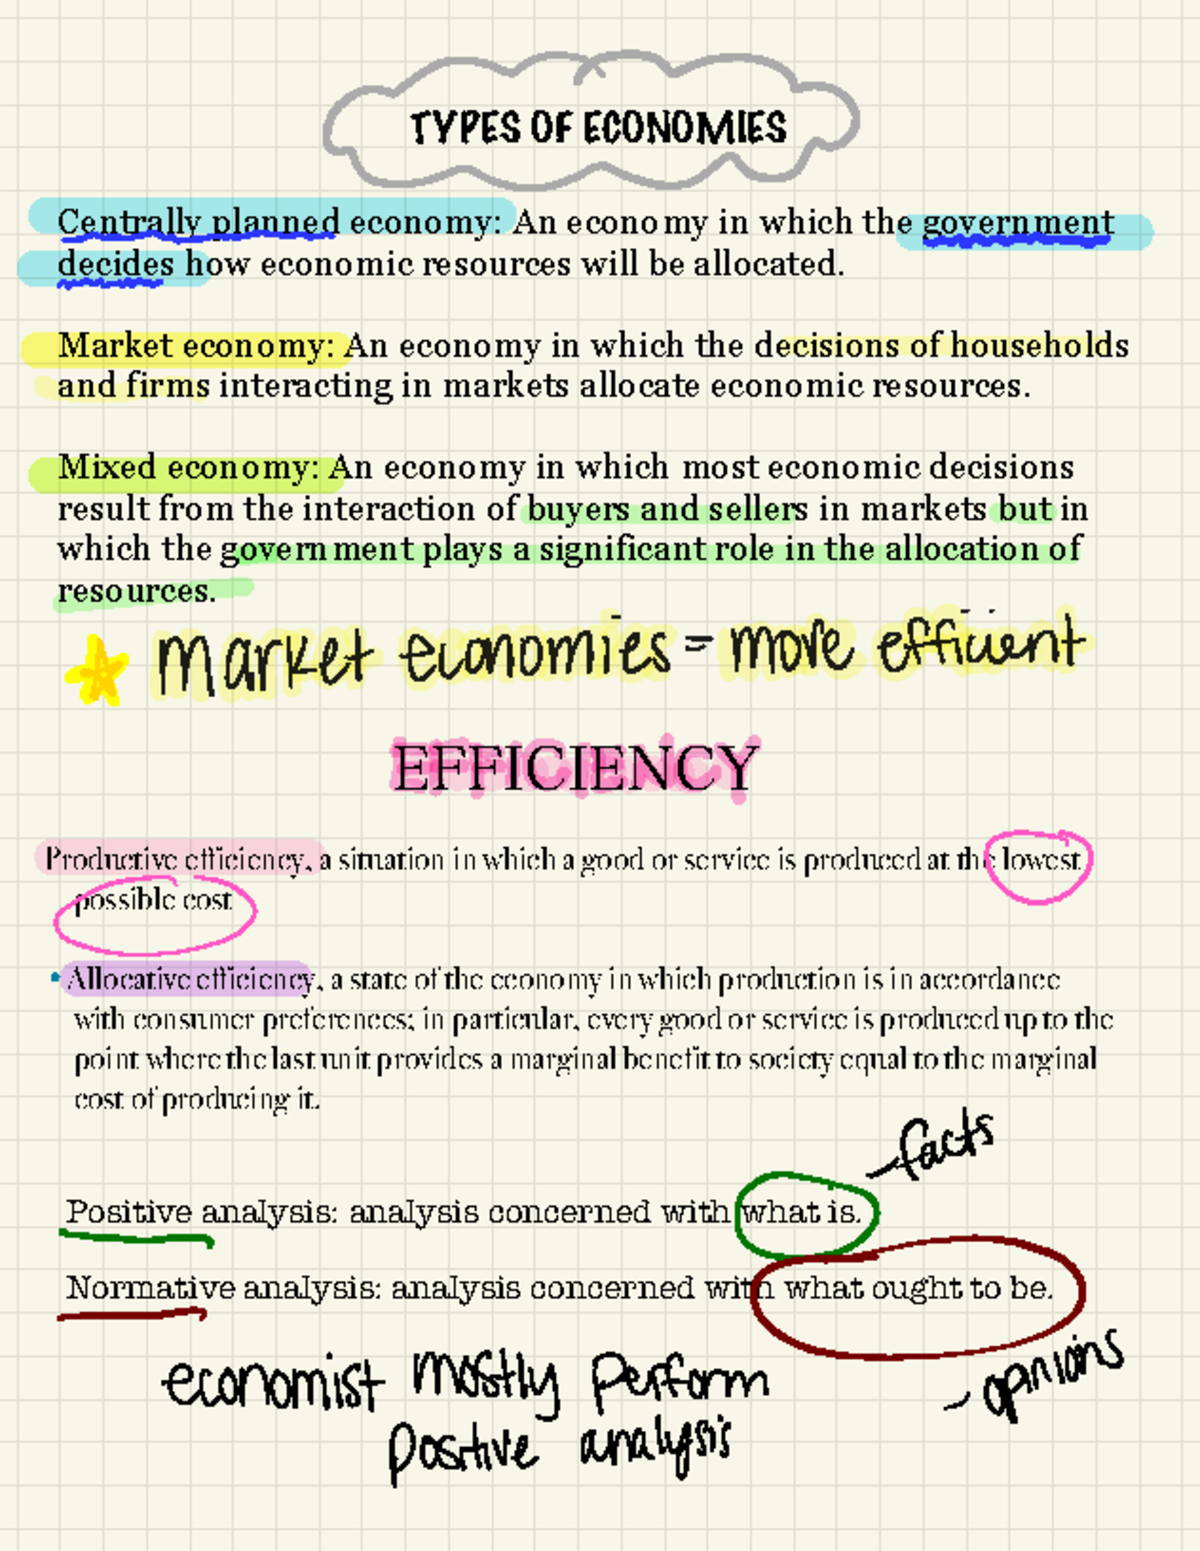 TYPES OF ECONOMIES
Centrally planned economy: An economy in which the government
decides how economic resources will be allocated.
Market economy: An economy in which the decisions of households
and firms interacting in markets allocate economic resources.
Mixed economy: An economy in which most economic decisions
result from the interaction of buyers and sellers in markets but in
which the government plays a significant role in the allocation of
resources.
Market economies = more efficient
EFFICIENCY
Productive efficiency, a situation in which a good or service is produced at the lowest
possible cost
• Allocative efficiency, a state of the economy in which production is in accordance
with consumer preferences; in particular, every good or service is produced up to the
point where the last unit provides a marginal benefit to society equal to the marginal
cost of producing it.
- facts
Positive analysis: analysis concerned with what is.
Normative analysis: analysis concerned with what ought to be.
- opinions
economist mostly perform
positive analysis